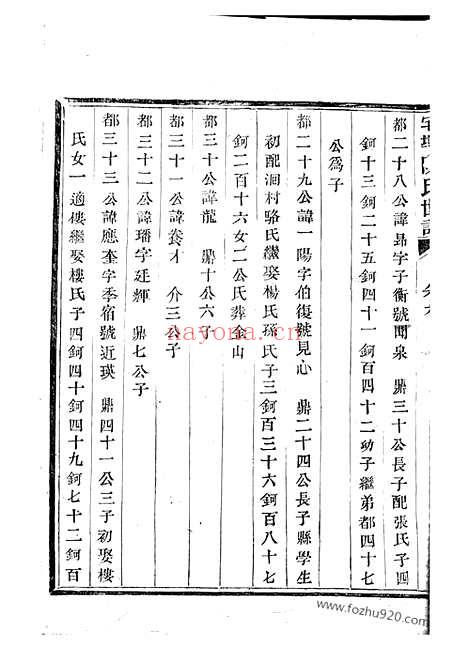 氏世譜
都二十八公諱昻字子衡號聞泉 鼎三十公長子配張氏子四
鈳十三鈳二十五鈳四十一鈳百四十二功子繼弟都四十七
公爲子
都二十九公諱一陽字伯復號見心 鼎二十四公長子縣學生
初配洄村駱氏繼娶楊氏孫氏子三鈳百三十六鈳百八十七
鈳二百十六女二公氏葬金山
都三十公諱龍 鼎十公六子
都三十一公諱 才 介三公子
都三十二公諱璠字廷輝 鼎七公子
都三十三公諱應奎字季宿號近瑛 鼎四十一公三子初娶樓
氏女一適樓繼娶樓氏子四鈳四十鈳四十九鈳七十二鈳百
nayona.cn
www.fozhu920.com